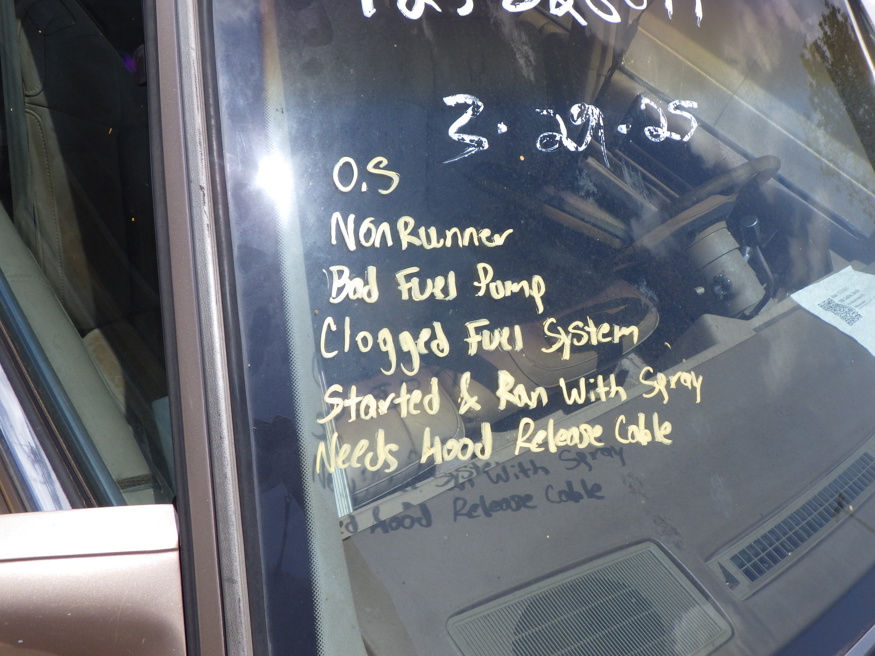 3.29.25
O.S
Non Runner
Bad Fuel Pump
Clogged Fuel System
Started & Ran With Spray
Needs Hood Release Cable